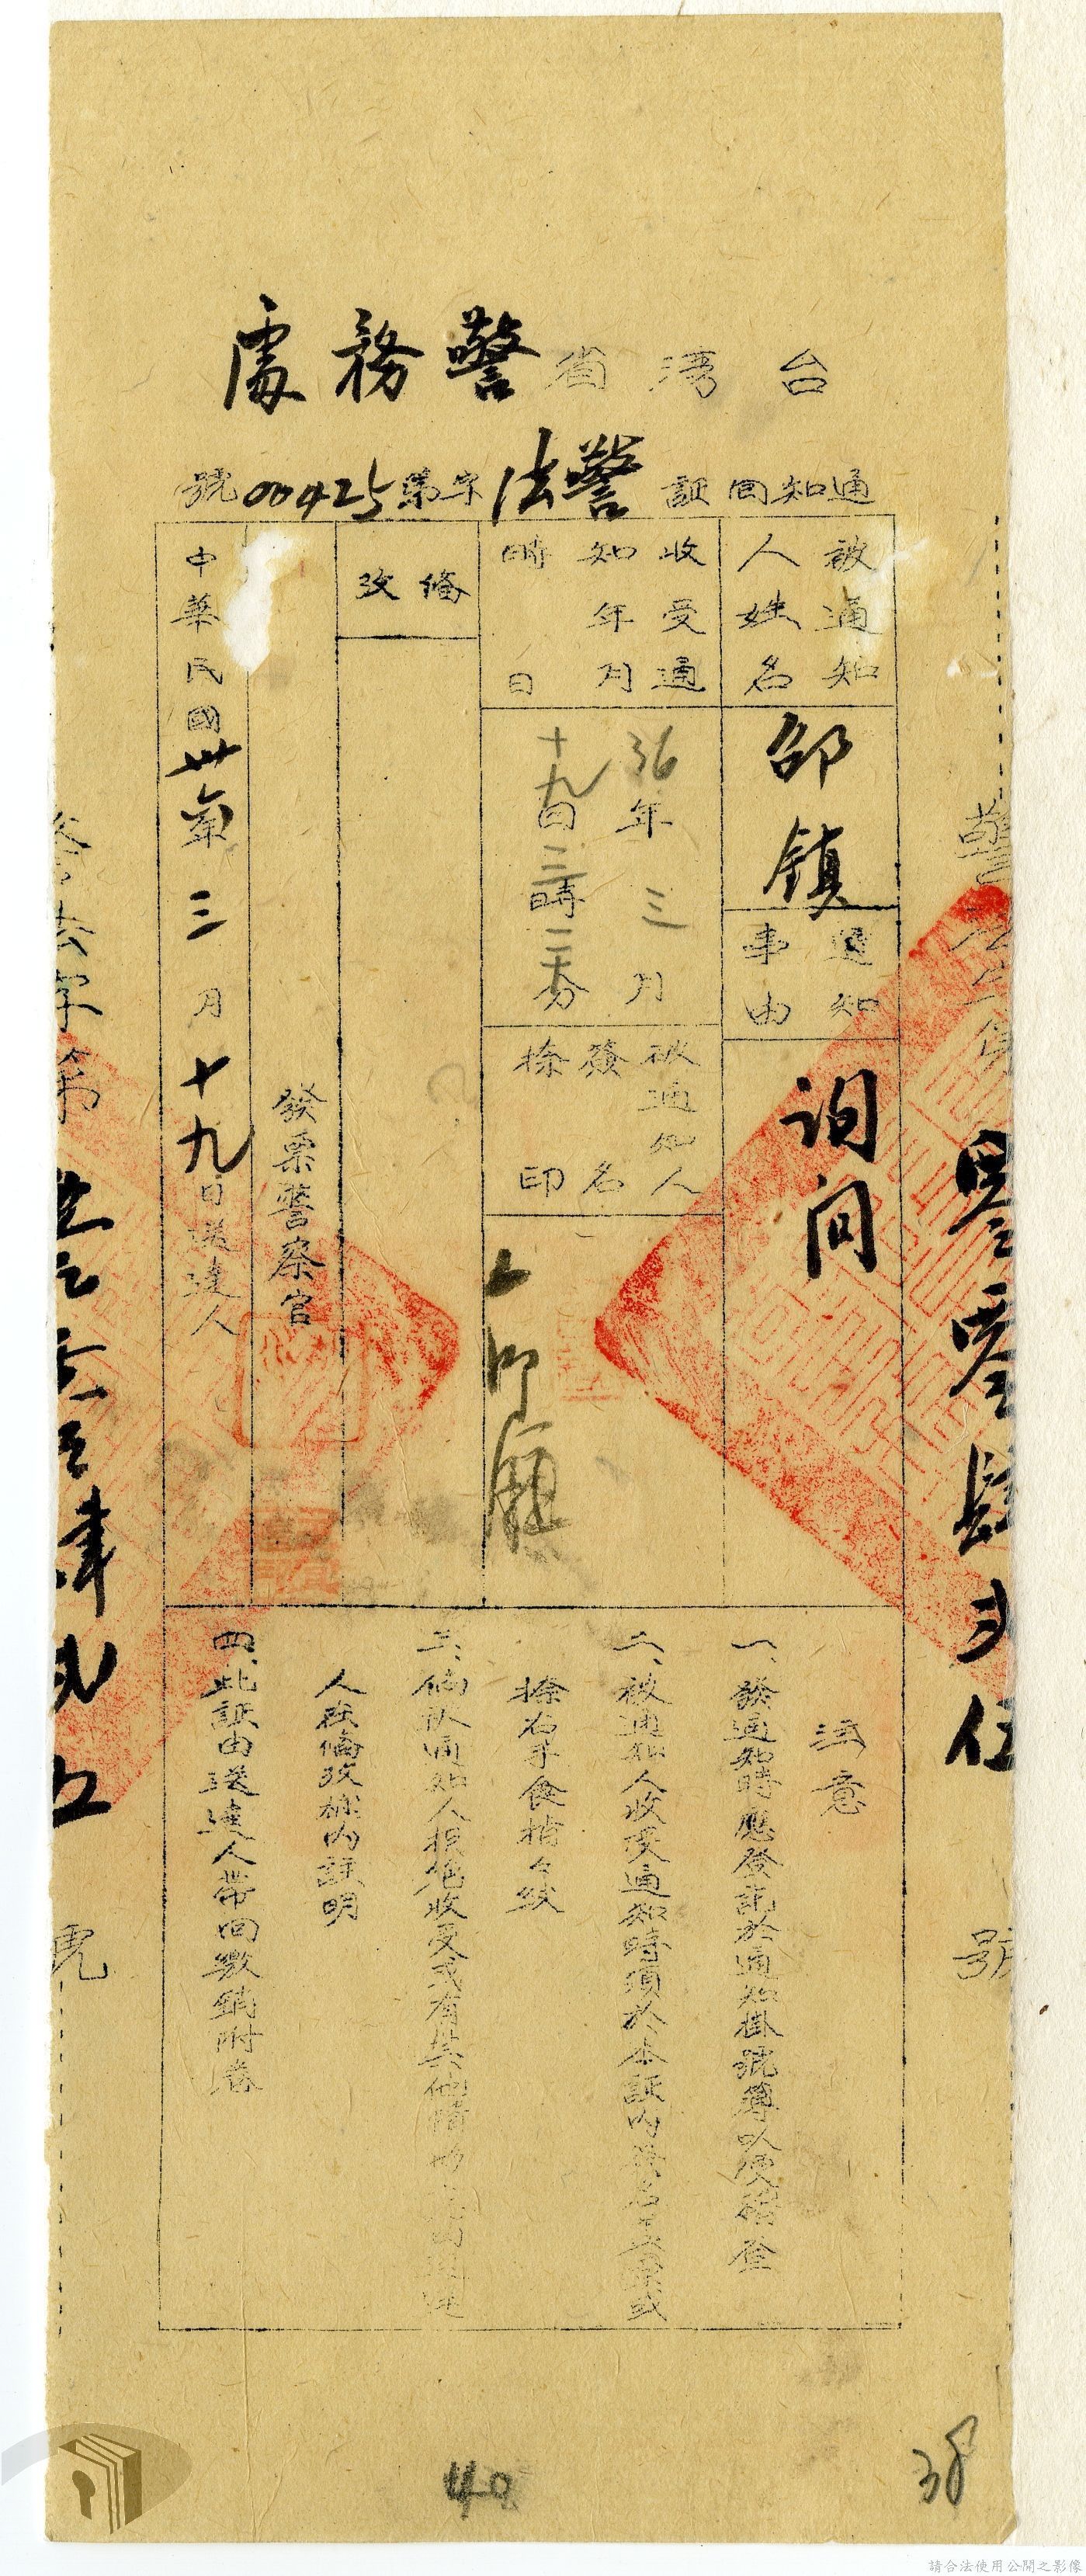 台灣省警務處
通知回証警法字第00425號
被通知人姓名
邵鎮
通知事由
詢问
收受通知年月日時
36年三月
十九日三時二十分
被通知人簽名捺印
備攷
發票警察官
中華民國卅六年三月十九日送達人
注意
一、發通知時應登記於通知掛號簿以便稽查
二、被通知人收受通知時須於本証內簽名蓋章或
捺右手食指々紋
三、倘被通知人拒絕收受或有其他情由
人在備攷欄內註明
四、此証由送達人帶回繳銷附卷
警法字第
零零肆弍伍
號
警法字第
號
40
38
請合法使用公開之影像